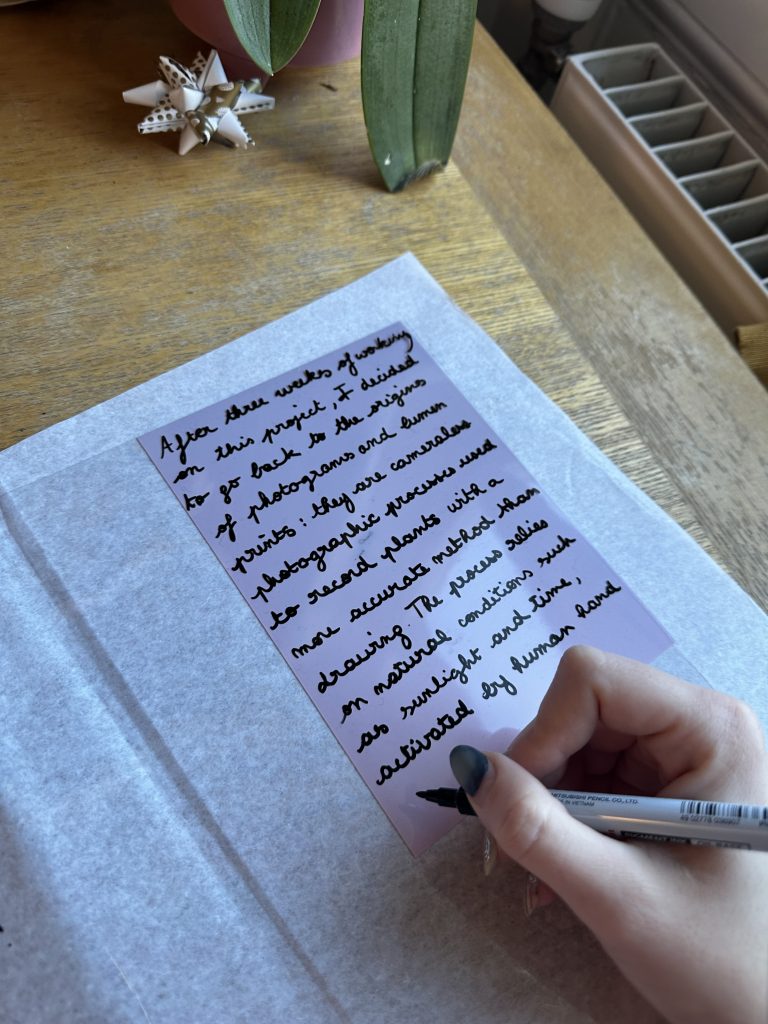 After three weeks of working
on this project, I decided
to go back to the origins
of photograms and lumen
prints : they are cameraless
photographic processes used
to record plants with a
more accurate method than
drawing. The process relies
on natural conditions such
as sunlight and time,
activated by human hand
MITSUBISHI PENCIL CO., LTD.
IN VIETNAM